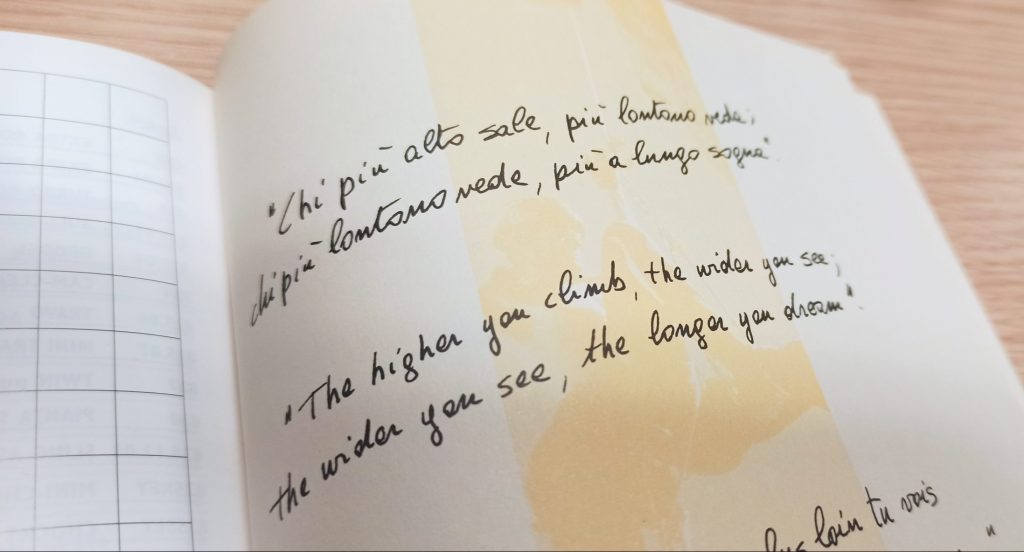 "Chi più alto sale, più lontano vede;
chi più lontano vede, più a lungo sogna"
"The higher you climb, the wider you see;
the wider you see, the longer you dream".
loin tu vois
"